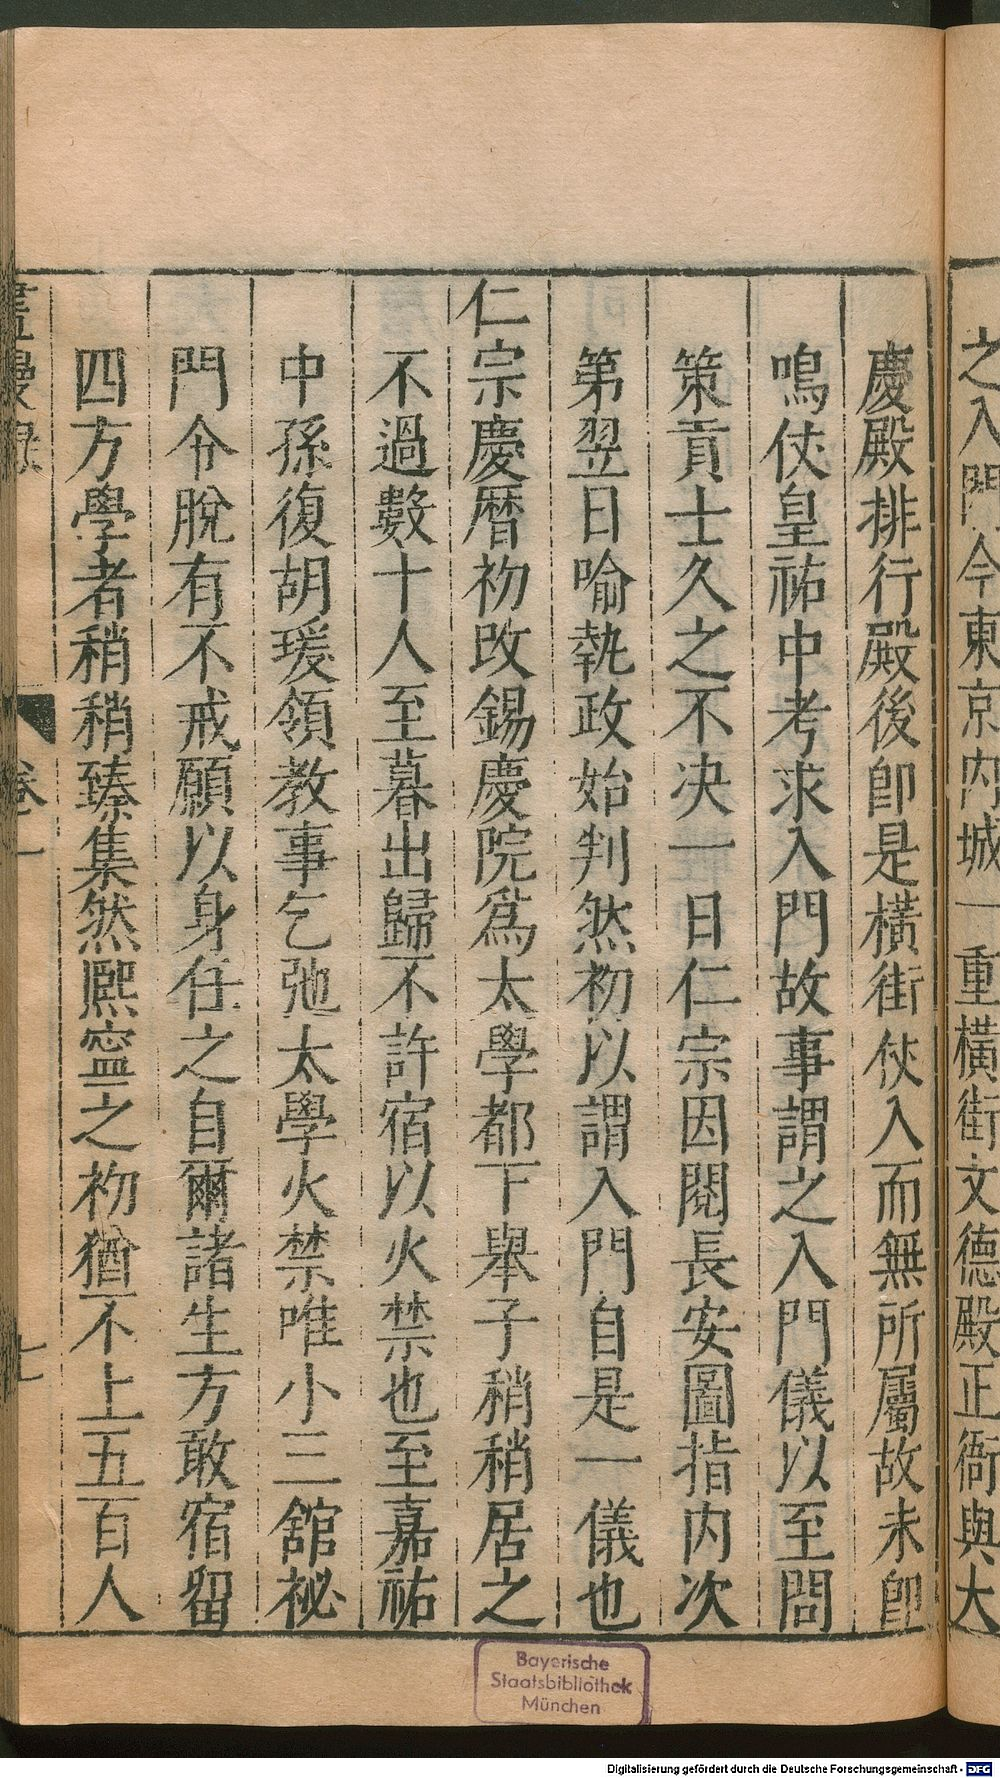 之入閤今東京内城一重橫街文德殿正衙與大
慶殿排行殿後卽是橫街仗入而無所屬故未卽
鳴仗皇祐中考求入門故事謂之入門儀以至問
策貢士久之不决一日仁宗因閱長安圖指内次
第翌日喻執政始判然初以謂入門自是一儀也
仁宗慶曆初改錫慶院爲太學都下舉子稍稍居之
不過數十人至暮出歸不許宿以火禁也至嘉祐
中孫復胡瑗領教事乞弛太學火禁唯小三舘祕
門令脫有不戒願以身任之自爾諸生方敢宿留
四方學者稍稍臻集然熈寧之初猶不上五百人
畫墁録
卷一
七
Bayerische
Staatsbibliothek
München
Digitalisierung gefördert durch die Deutsche Forschungsgemeinschaft - DFG